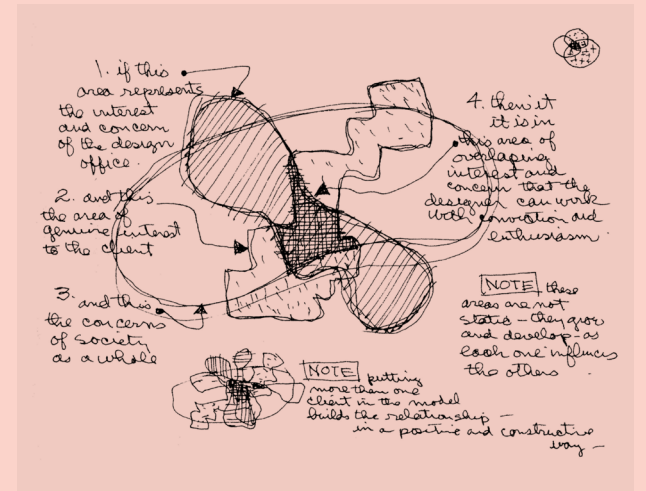 1. if this
area represents
the interest
and concern
of the design
office.
2. and this
the area of
genuine interest
to the client
3. and this
the concerns
of society
as a whole
4. then it
it is in
this area of
overlaping
interest and
concern that the
designer can work
with conviction and
enthusiasm.
NOTE these
areas are not
static - they grow
and develop - as
each one influences
the others.
NOTE putting
more than one
client in the model
builds the relationship -
in a positive and constructive
way -